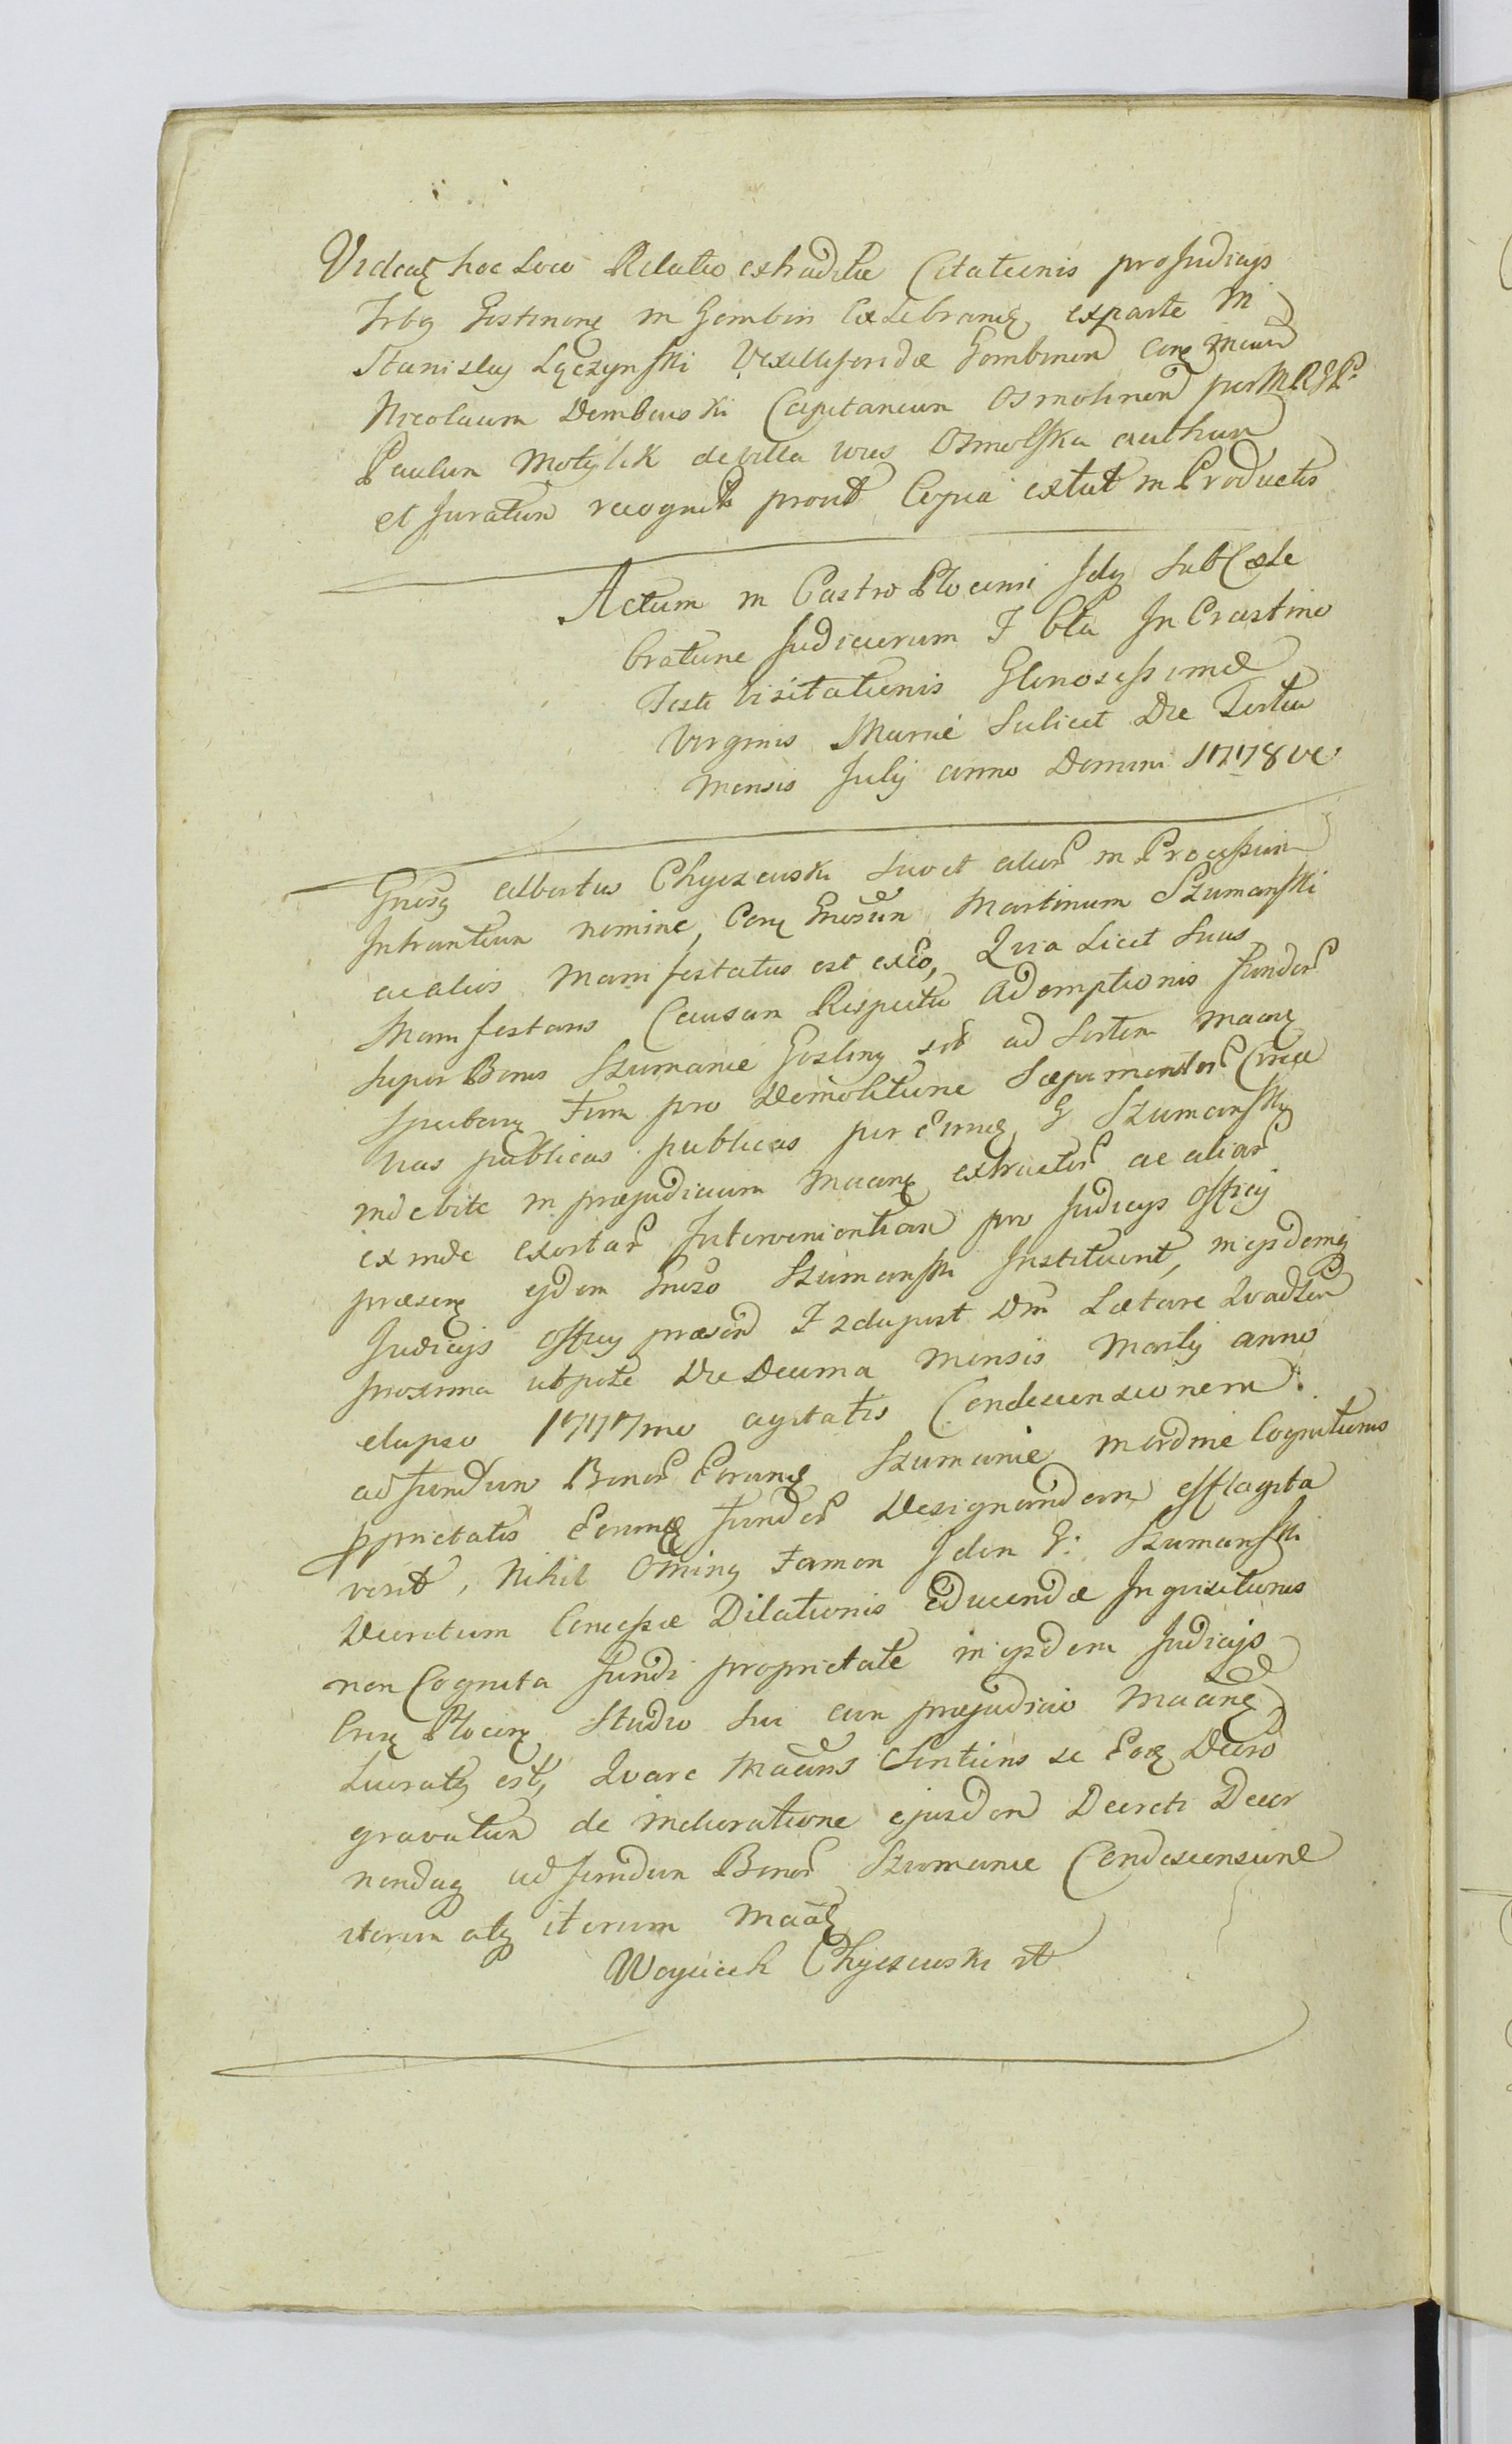 Videatꝫ hoc Loco Relatio extraditæ Citationis pro Judicijs
Trbꝫ Gostinenꝫ in Gombin Celebranꝫ exparte M
Stanislaꝫ Lączynski Vexilliferidæ Gombinen conꝫ
Nicolaum Dembowski Capitaneum Osmolinen per
Paulum Motylik de villa wies Osmolska authen
et Juratum recognit prout Copia extat in Productis
Actum in Castro Plocensi Sub Cæle
bratione Judiciorum F In Crastino
Festi Visitationis Gloriosissimæ
Virginis Mariæ Scilicet Die Tertia
Mensis Julij anno Domini 1778vo
Gnosꝫ Albertus Chyczewski suo et alior in Processum
Intrantium nomine, Conꝫ Gnosum Martinum Szumanski
ac alios Manifestatus est exeo, Quia Licet Suus
Manifestans Causam Respectu Ademptionis fundor
super Bonis Szumanie ad sortem Maanꝫ
spectanꝫ Tum pro Demolitione Sæpimentor Circa
vias publicas publicas per Eunꝫ G Szumanskꝫ
indebite in præjudicium Maanꝫ extractor ac aliar
exinde exortar Intervenientiam pro Judicijs Officij
præsenꝫ ejdem Gnoso Szumanski Instituerit, in ejsdemꝫ
Judicijs Officij præsen F 2da post Dm Lætare Quadlem
proxima utpote Die Decima Mensis Martij anno
elapso 1777mo agitatis Condescensionem
ad fundum Bonor Eorunꝫ Szumanie inordine Cognitionis
pprietatis Eorunꝫ fundor Designandam efflagita
verit, Nihil Ominꝫ tamen Idem G: Szumanski
Decretum Concessæ Dilationis Educendæ Inquisitionis
non Cognita fundi proprietate in ejsdem Judicijs
Plocenꝫ Studio sui cum præjudicio Maanꝫ
Lucratꝫ est, Quare Maans Sentiens se Eoꝫ Decro
gravatum de melioratione ejusdem Decreti Decer
nendaꝫ ad fundum Bonor Szumanie Condescensione
iterum atꝫ iterum Maatꝫ
Woyciech Chyczewski